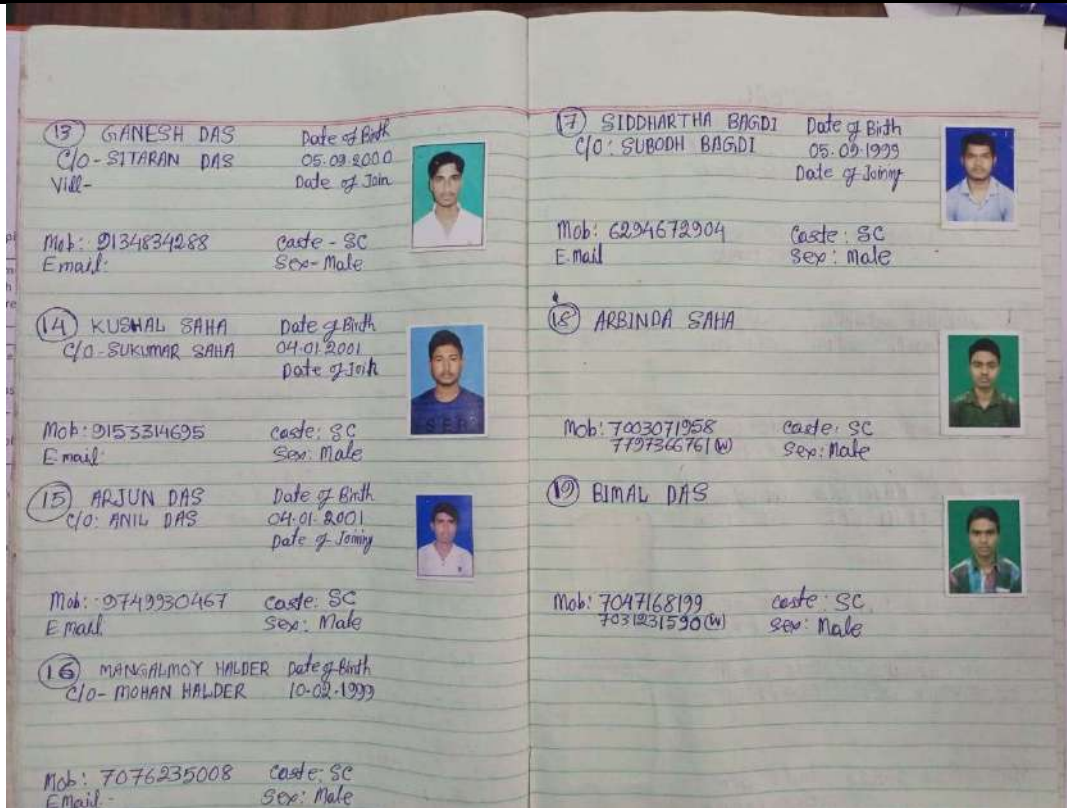 13 GANESH DAS Date of Birth
C/O - SITARAN DAS 05.09.2000
Vill- Date of Join
Mob: 9134834288 Caste - SC
Email: Sex- Male
14 KUSHAL SAHA Date of Birth
C/O - SUKUMAR SAHA 04.01.2001
Date of Join
Mob: 9153314695 Caste: SC
Email: Sex: Male
15 ARJUN DAS Date of Birth
C/O: ANIL DAS 04.01.2001
Date of Joining
Mob: 9749930467 Caste: SC
Email Sex: Male
16 MANGALMOY HALDER Date of Birth
C/O- MOHAN HALDER 10-02-1999
Mob: 7076235008 Caste: SC
EMail - Sex: Male
17 SIDDHARTHA BAGDI Date of Birth
C/O: SUBODH BAGDI 05.09.1999
Date of Joining
Mob: 6294672904 Caste: SC
E.mail Sex: Male
18 ARBINDA SAHA
Mob: 7003071958 Caste: SC
7797366761 (W) Sex: Male
19 BIMAL DAS
Mob: 7047168199 Caste: SC
7031231590 (W) Sex: Male